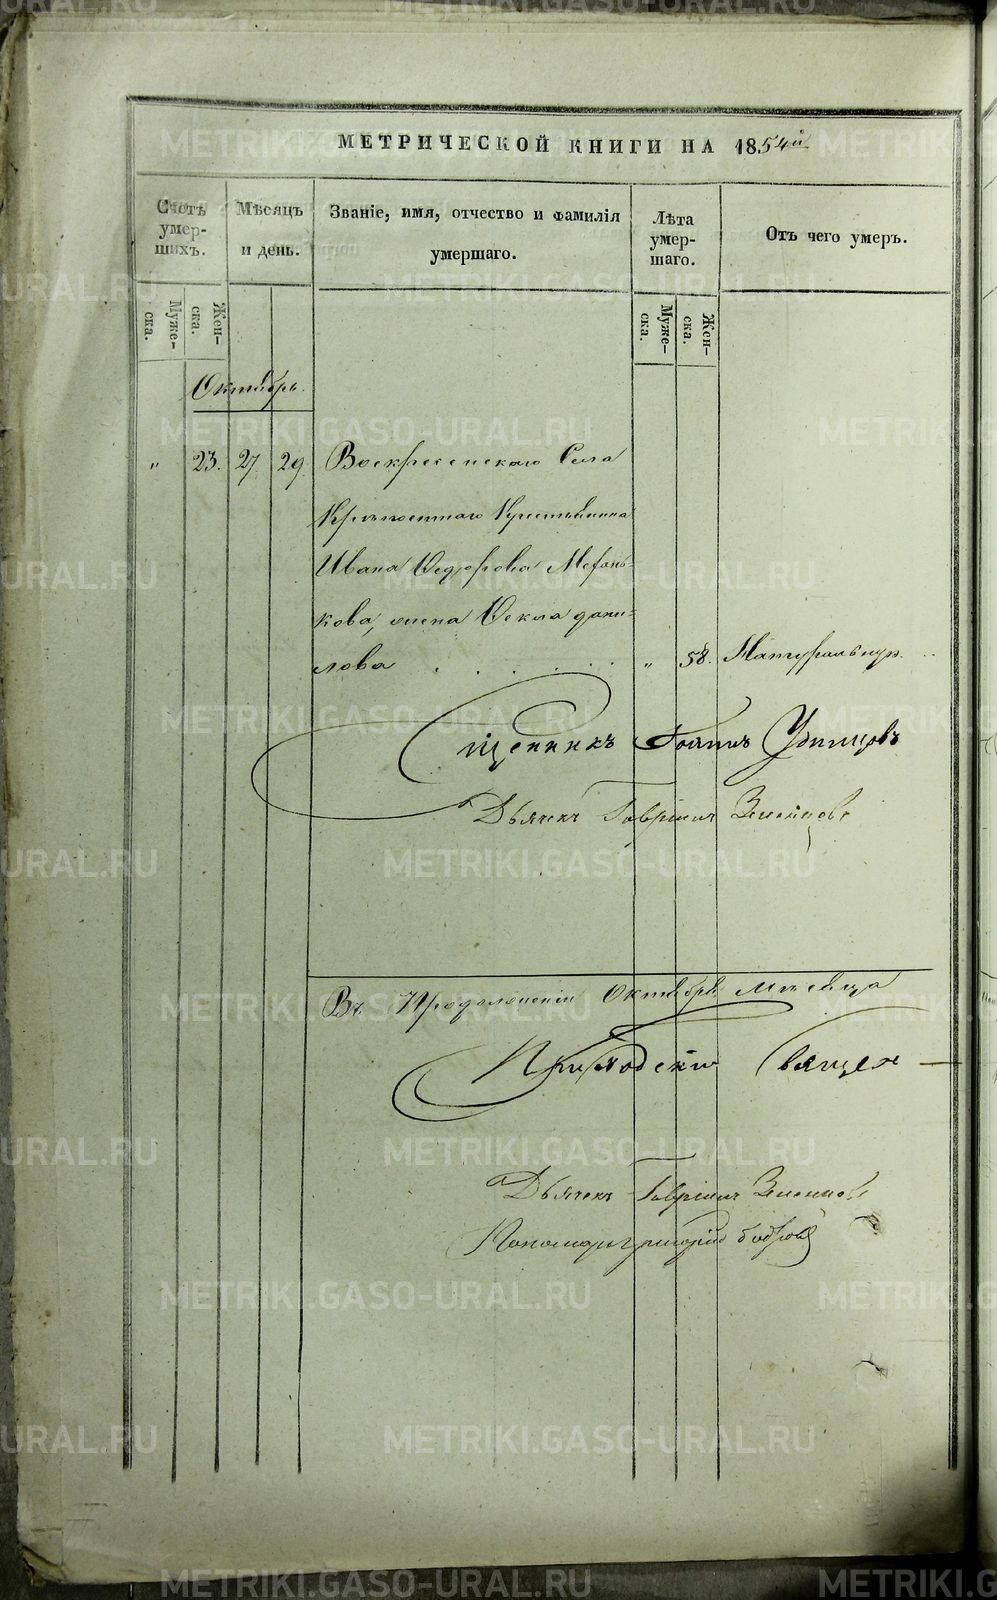 МЕТРИЧЕСКОЙ КНИГИ НА 1854й
Счотъ умер-шихъ.
Мѣсяцъ и день.
Званіе, имя, отчество и фамилія умершаго.
Лѣта умер-шаго.
Отъ чего умеръ.
Муже-ска.
Жен-ска.
Муже-ска.
Жен-ска.
Октябрь.
" 23. 27 29 Воскресенскаго Села
Крѣпостнаго Крестьянина
Ивана Ѳедорова Мехонь-
кова, жена Ѳекла Дани-
лова " 58. Натурально.
Священникъ Іоаннъ Удинцовъ
Дьячекъ Гавріилъ
Въ Продолженіи Октября Мѣсяца
Приходскій Священ
Дьячекъ Гавріилъ
Пономарь Григорій Бобровъ
METRIKI.GASO-URAL.RU